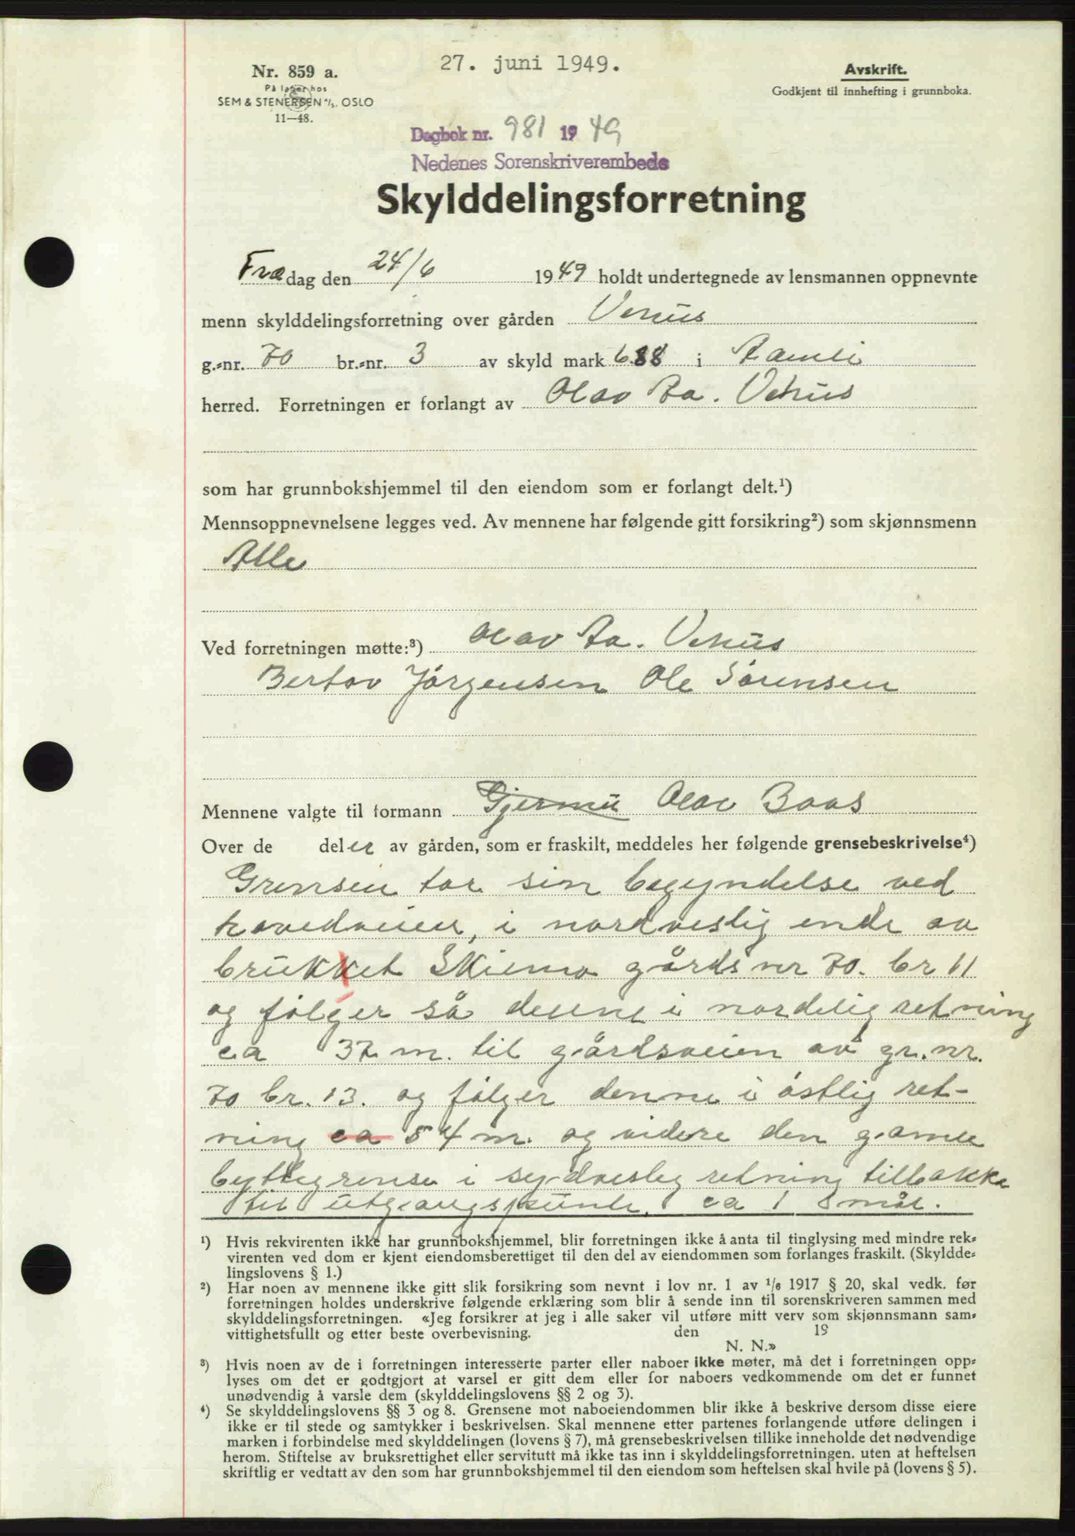 27. juni 1949.
Nr. 859 a.
På lager hos
SEM & STENERSEN A/S. OSLO
11—48.
Avskrift.
Godkjent til innhefting i grunnboka.
Dagbok nr. 981 1949
Nedenes Sorenskriverembede
Skylddelingsforretning
Fredag den 24/6 1949 holdt undertegnede av lensmannen oppnevnte
menn skylddelingsforretning over gården Vehus
g.-nr. 70 br.-nr. 3 av skyld mark 6.88 i Aamli
herred. Forretningen er forlangt av Olav Aa. Vehus
som har grunnbokshjemmel til den eiendom som er forlangt delt.¹)
Mennsoppnevnelsene legges ved. Av mennene har følgende gitt forsikring²) som skjønnsmenn
Alle
Ved forretningen møtte:³) Olav Aa. Vehus
Bertov Jørgensen Ole Sørensen
Mennene valgte til formann Olav Baas
Over de deler av gården, som er fraskilt, meddeles her følgende grensebeskrivelse⁴)
Grensen tar sin begyndelse ved
hovedveien, i nordvestig ende av
brukket Skiemo gårds nr 70. br 11
og følger så denne i nordelig retning
ca 37 m. til gårdsveien av gr. nr.
70 br. 13. og følger denne i østlig ret-
ning ca 54 m. og videre den gamle
byttegrense i sydvestlig retning tilbakke
til utgangspunkt. ca 1 mål.
¹) Hvis rekvirenten ikke har grunnbokshjemmel, blir forretningen ikke å anta til tinglysing med mindre rek-
virenten ved dom er kjent eiendomsberettiget til den del av eiendommen som forlanges fraskilt. (Skyldde-
lingslovens § 1.)
²) Har noen av mennene ikke gitt slik forsikring som nevnt i lov nr. 1 av 1/6 1917 § 20, skal vedk. før
forretningen holdes underskrive følgende erklæring som blir å sende inn til sorenskriveren sammen med
skylddelingsforretningen. «Jeg forsikrer at jeg i alle saker vil utføre mitt verv som skjønnsmann sam-
vittighetsfullt og etter beste overbevisning. den 19
N. N.»
³) Hvis noen av de i forretningen interesserte parter eller naboer ikke møter, må det i forretningen opp-
lyses om det er godtgjort at varsel er gitt dem eller for naboers vedkommende om det er funnet
unødvendig å varsle dem (skylddelingslovens §§ 2 og 3).
⁴) Se skylddelingslovens §§ 3 og 8. Grensene mot naboeiendommen blir ikke å beskrive dersom disse eiere
ikke er til stede og samtykker i beskrivelsen. Skal mennene etter partenes forlangende utføre delingen i
marken i forbindelse med skylddelingen (lovens § 7), må grensebeskrivelsen tillike inneholde det nødvendige
herom. Stiftelse av bruksrettighet eller servitutt må ikke tas inn i skylddelingsforretningen. uten at heftelsen
skriftlig er vedtatt av den som har grunnbokshjemmel til den eiendom som heftelsen skal hvile på (lovens § 5).